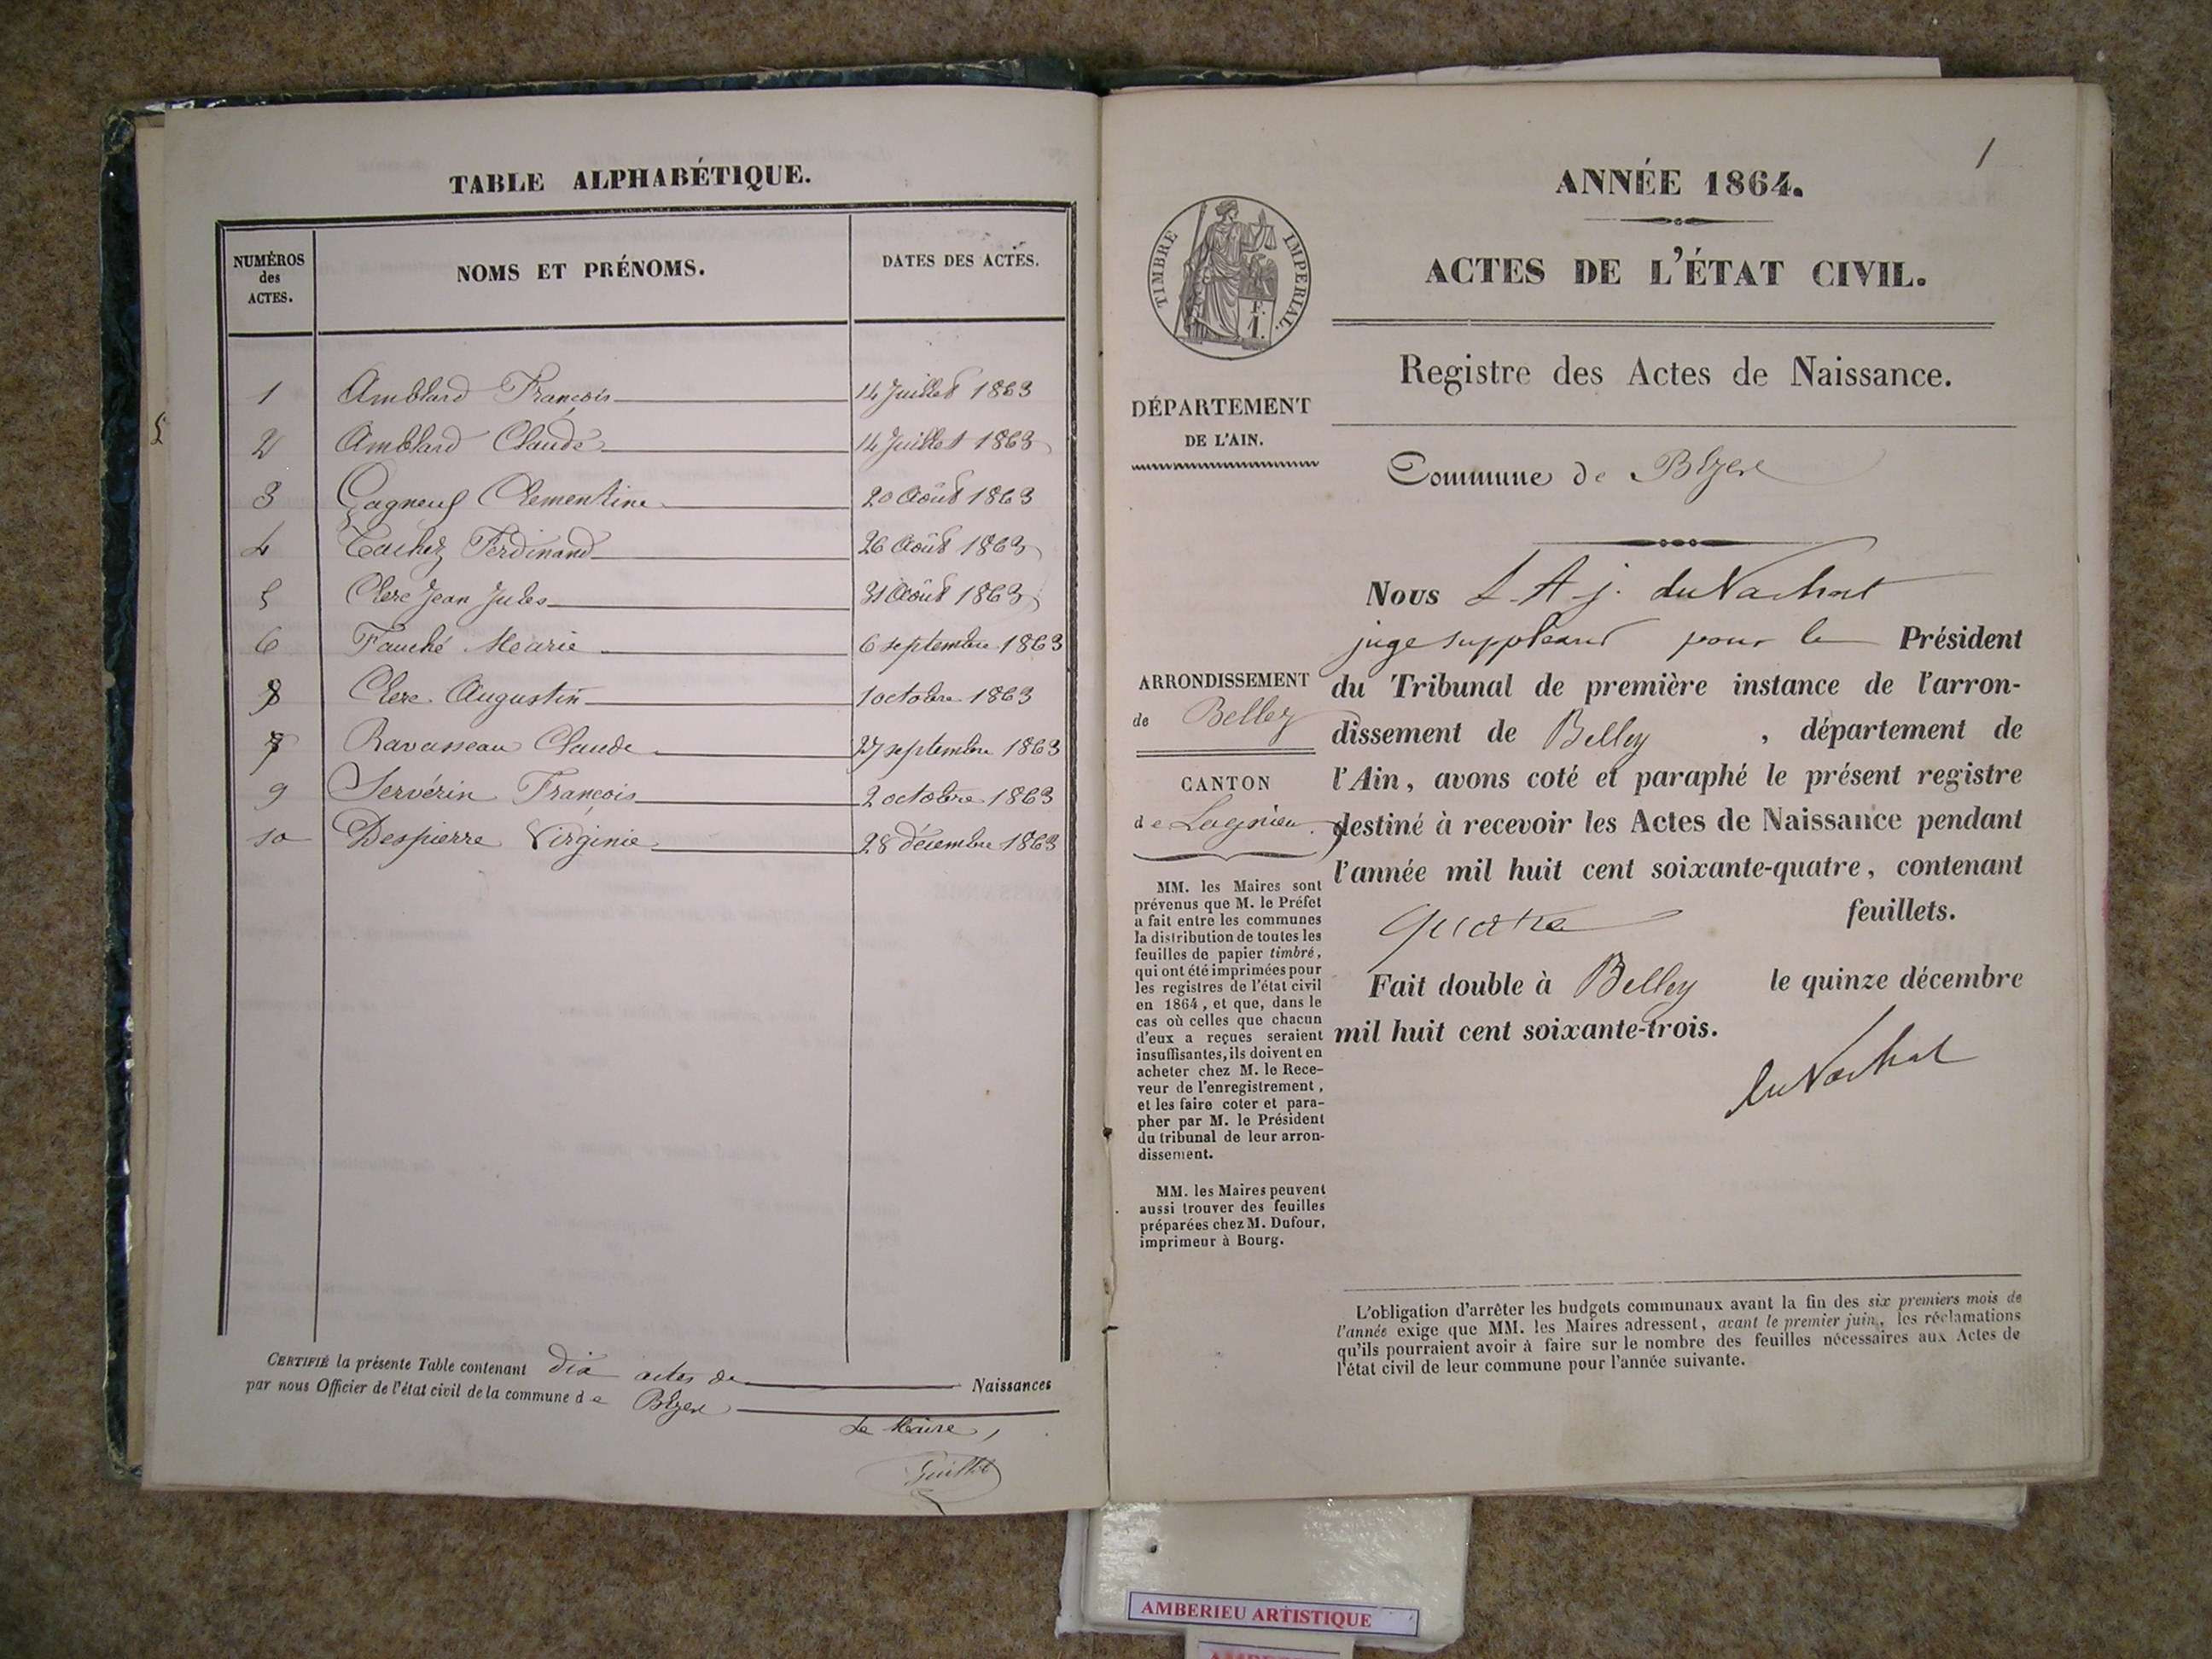 TABLE ALPHABÉTIQUE.
NUMÉROS
des
ACTES.
NOMS ET PRÉNOMS.
DATES DES ACTES.
1 Amblard François 14 Juillet 1863
2 Amblard Claude 14 Juillet 1863
3 Gagneux Clementine 20 Août 1863
4 Ferdinand 26 Août 1863
5 Clerc Jean Jules 31 Août 1863
6 Fauché Marie 6 septembre 1863
8 Clerc Augustin 1 octobre 1863
7 Ravasseau Claude 27 septembre 1863
9 Servérin François 2 octobre 1863
10 Despierre Virginie 28 décembre 1863
CERTIFIÉ la présente Table contenant dix actes de Naissances
par nous Officier de l'état civil de la commune de
Le Maire,
1
ANNÉE 1864.
ACTES DE L'ÉTAT CIVIL.
TIMBRE IMPERIAL.
F.
1.
Registre des Actes de Naissance.
DÉPARTEMENT
DE L'AIN.
Commune de
ARRONDISSEMENT
de Belley
CANTON
de Lagnieu.
MM. les Maires sont
prévenus que M. le Préfet
a fait entre les communes
la distribution de toutes les
feuilles de papier timbré,
qui ont été imprimées pour
les registres de l'état civil
en 1864, et que, dans le
cas où celles que chacun
d'eux a reçues seraient
insuffisantes, ils doivent en
acheter chez M. le Rece-
veur de l'enregistrement,
et les faire coter et para-
pher par M. le Président
du tribunal de leur arron-
dissement.
MM. les Maires peuvent
aussi trouver des feuilles
préparées chez M. Dufour,
imprimeur à Bourg.
Nous L. A. j. du Vachat
juge suppléant pour le Président
du Tribunal de première instance de l'arron-
dissement de Belley, département de
l'Ain, avons coté et paraphé le présent registre
destiné à recevoir les Actes de Naissance pendant
l'année mil huit cent soixante-quatre, contenant
quatre feuillets.
Fait double à Belley le quinze décembre
mil huit cent soixante-trois.
du Vachat
L'obligation d'arrêter les budgets communaux avant la fin des six premiers mois de
l'année exige que MM. les Maires adressent, avant le premier juin, les réclamations
qu'ils pourraient avoir à faire sur le nombre des feuilles nécessaires aux Actes de
l'état civil de leur commune pour l'année suivante.
AMBERIEU ARTISTIQUE